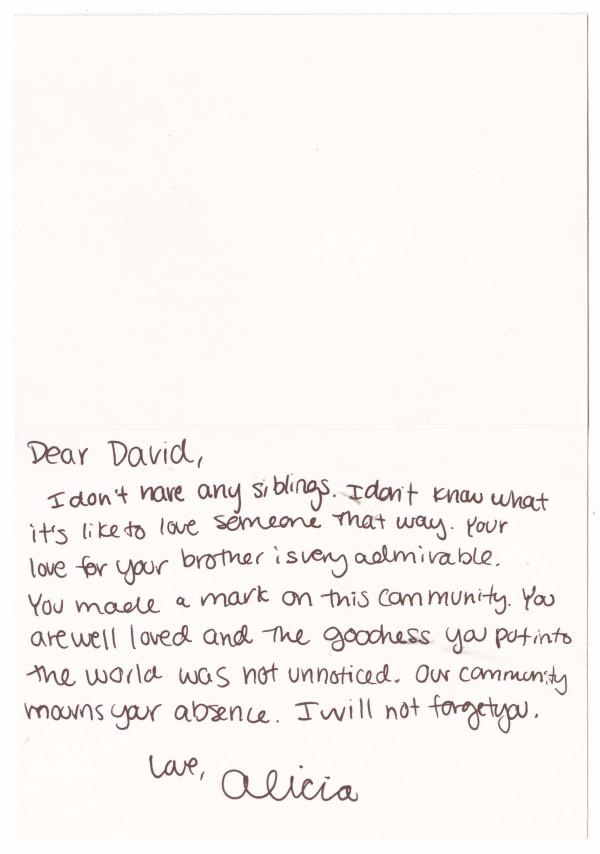 Dear David,
I don't have any siblings. I don't know what
it's like to love someone that way. Your
love for your brother is very admirable.
You made a mark on this community. You
are well loved and the goodness you put into
the world was not unnoticed. Our community
mourns your absence. I will not forget you.
Love,
Alicia